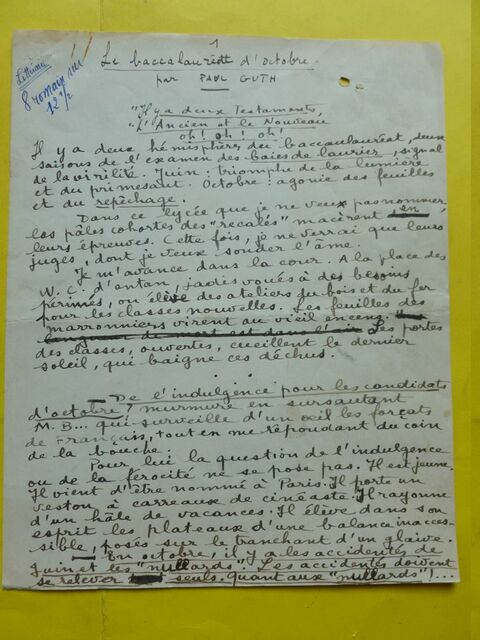 1
Littéraire
8 romain sur
12 1/2
Le baccalauréat d'octobre
par PAUL GUTH
"Il y a deux Testaments,
"L'Ancien et le Nouveau
oh! oh! oh!
Il y a deux hémisphères du baccalauréat, deux
saisons de l'examen des baies de laurier, signal
de la virilité. Juin : triomphe de la lumière
et du primesaut. Octobre : agonie des feuilles
et du repêchage.
Dans ce lycée que je ne veux pas nommer,
les pâles cohortes des "recalés" macèrent en
leurs épreuves. Cette fois, je ne verrai que leurs
juges, dont je veux sonder l'âme.
Je m'avance dans la cour. A la place des
W.C. d'antan, jadis voués à des besoins
périmés, on élève des ateliers du bois et du fer
pour les classes nouvelles. Les feuilles des
marronniers virent au vieil encens.
Les portes
des classes, ouvertes, cueillent le dernier
soleil, qui baigne ces déchus.
_ De l'indulgence pour les candidats
d'octobre? murmure en sursautant
M. B... qui surveille d'un œil les forçats
de Français, tout en me répondant du coin
de la bouche.
Pour lui la question de l'indulgence
ou de la férocité ne se pose pas. Il est jeune.
Il vient d'être nommé à Paris. Il porte un
veston à carreaux de cinéaste. Il rayonne
d'un hâle de vacances. Il élève dans son
esprit les plateaux d'une balance inacces-
sible, posés sur le tranchant d'un glaive.
_ En octobre, il y a les accidentés de
Juin et les "nullards". Les accidentés doivent
se relever seuls. Quant aux "nullards"!...